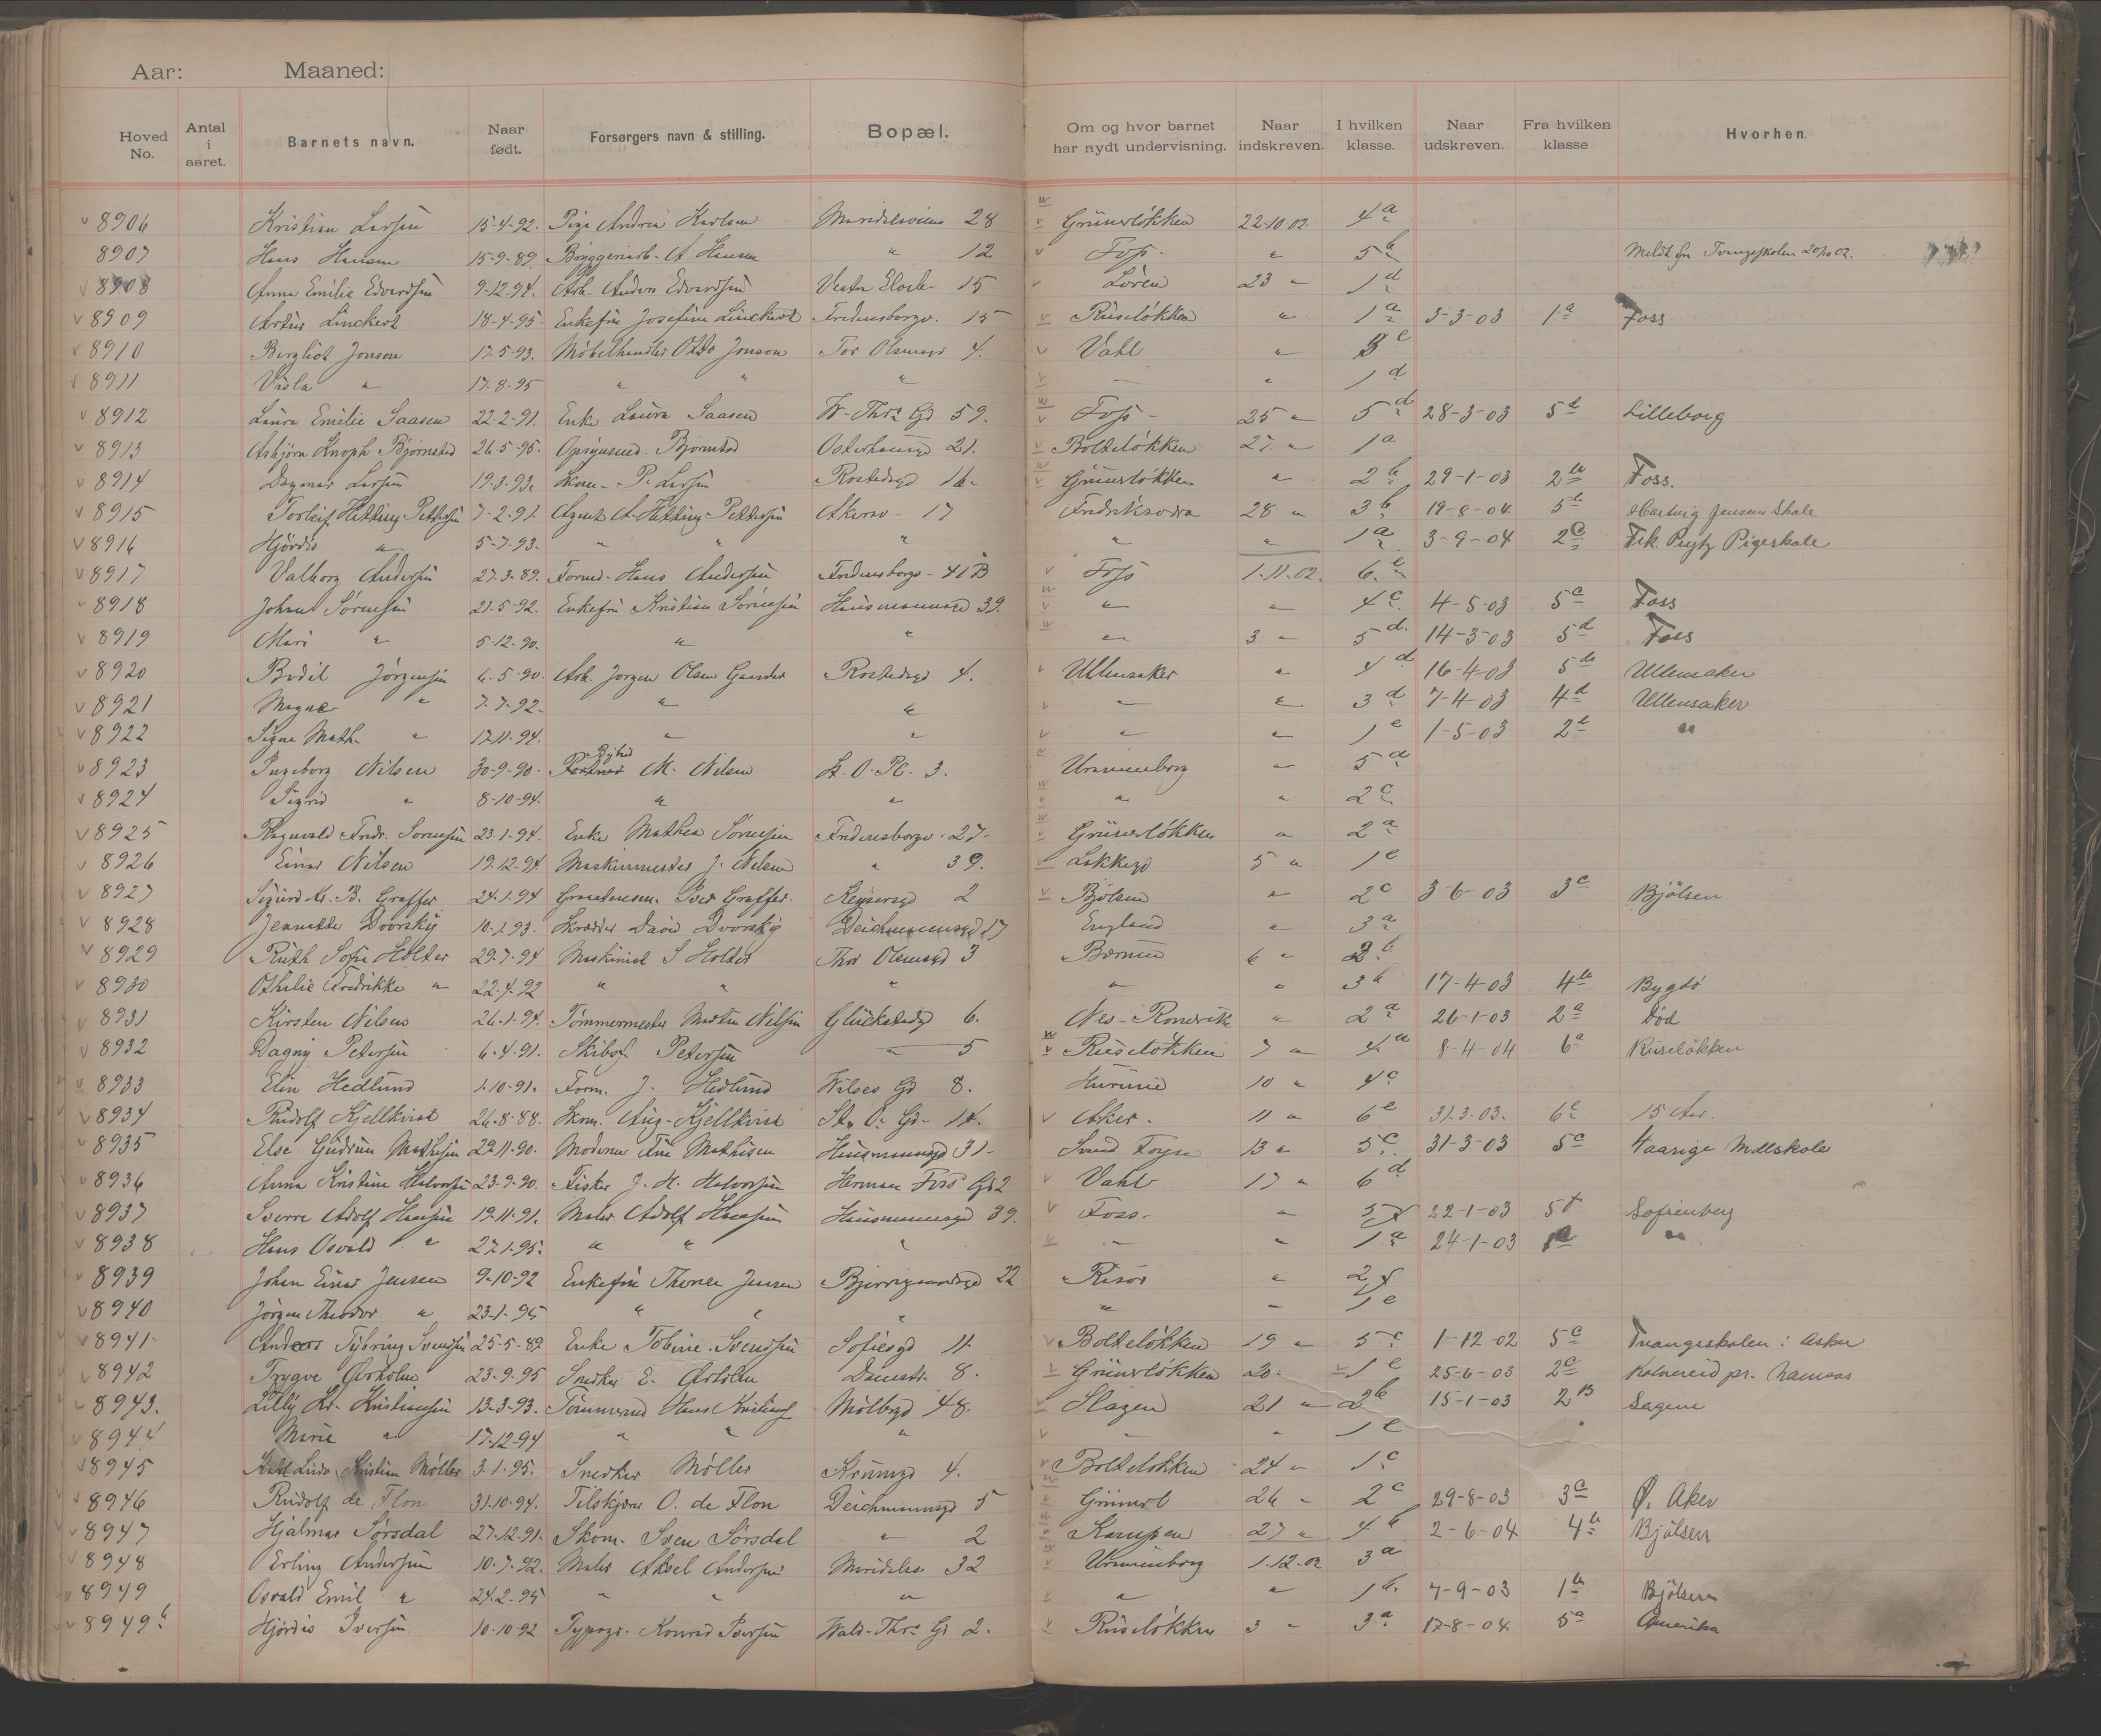 Aar: Maaned:
Hoved No. Antal i aaret. Barnets navn. Naar født. Forsørgers navn & stilling. Bopæl. Om og hvor barnet har nydt undervisning. Naar indskreven. I hvilken klasse. Naar udskreven. Fra hvilken klasse Hvorhen.
8906 Kristian Larsen 15-4-92. Pige Andrea Karlsen 28 Grünerløkken 22-10 02. 4a
8907 Hans Hansen 15-9-89. A Hansen " 12 Foss - " 5b Meldt fra Tvangsskolen 20/10 02.
8908 Anna Emilie Edvardsen 9-12-94. Arb. Anders Edvardsen 15 Løren 23 " 1d
8909 Artur Linckert 18-4-95 Enkefru Josefine Linckert Fredensborgv. 15 Ruseløkken " 1a 3-3-03 1a Foss
8910 Bergliot Jonson 17-5-93. Møbelhandler Otto Jonson Tor Olsensgd 4. Vahl " 3c
8911 " 17-8-95 " " " — " 1d
8912 Laura Emilie Saasen 22-2-91. Enke Laura Saasen W-Thrs Gd 59. Foss - 25 " 5d 28-3-03 5d Lilleborg
8913 Asbjørn Knoph Bjørnstad 26-5-95. Bjørnstad Osterhausgd 21. Bolteløkken 27 " 1a
8914 Dagmar Larsen 19-3-93. Skom - P. Larsen Rostedsgd 16 - Grünerløkken " 2b 29-1-03 2b Foss.
8915 Torleif Hitting-Pettersen 7-2-91 Agent A-Hitting-Pettersen Akersv - 17 28 " 3b 19-8-04 5b Hartvig Jensens Skole
8916 Hjördis " 5-7-93. " " " " " 1a 3-9-04 2c Frk. Pigeskole
8917 Valborg Andersen 27-3-89. Formd - Hans Andersen Fredensborgv - 41 B Foss 1-11-02. 6e
8918 Johan Sørensen 21-5-92. Enkefru Kristian Sørensen Hausmannsgd 39. " " 4c 4-5-03 5c Foss
8919 " 5-12-90. " " " 3 " 5d. 14-3-03 5d Foss
8920 Bodil Jørgensen 6-5-90. Arb. Jørgen Olsen Rostedsgd 4. Ullensaker " 4d 16-4-03 5b Ullensaker
8921 Magne " 7-7-92. " " " " 3d 7-4-03 4d Ullensaker
8922 Signe Math. " 17-11-94. " " " " 1e 1-5-03 2b "
8923 Ingeborg Nilsen 30-9-90. Bybud M. Nilsen St. O. Pl. 3. Uranienborg " 5a
8924 Sigrid " 8-10-94. " " " " 2c
8925 Ragnvald Fredr. Sørensen 23-1-94. Enke Mathea Sørensen Fredensborgv. 27. Grünerløkken " 2a
8926 Einar Nilsen 19-12-94 Maskinmester J. Nilsen " 39. Lakkegd 5 " 1e
8927 Sigurd Graffer 24-1-94 Iver Graffer. Keysersgd 2 Bjølsen " 2c 3-6-03 3c Bjølsen
8928 Jeanette Dvorsky 10-1-93. Skrædder David Dvorsky Deichmannsgd 17 England " 3a
8929 Ruth Sofie Holter 29-7-94 Maskinist S Holter Thor Olsensgd 3 Bærum 6 " 2b
8930 Othilie Fredrikke " 22-4-92 " " " " " 3b 17-4-03 4b Bygdø
8931 Kirsten Nilsen 26-1-94. Tømmermester Martin Nilsen Glückstadsgd 6. Nes - " 2a 26-1-03 2a Død
8932 Dagny Petersen 6-4-91. Petersen " 5 Ruseløkken 7 " 4a 8-4-04 6a Ruseløkken
8933 Elin Hedlund 1-10-91. Form. J. Hedlund Wilses Gd 8. 10 " 4c
8934 Rudolf Kjellkvist 26-8-88. Skom. Aug. Kjellkvist St. O. Gd - 14. Aker. 11 " 6e 31-3-03. 6e 15 Aar.
8935 Else Gudrun Mathisen 29-11-90. Moderen Fru Mathisen Hausmannsgd 31 - Svend Foyns 13 " 5c. 31-3-03 5c 4aarige Mdlskole
8936 Anna Kristine Halvorsen 23-9-90. Fisker J. H. Halvorsen Herman Foss Gd 2 Vahl 17 " 6d
8937 Sverre Adolf Hansen 19-11-91. Maler Adolf Hansen Hausmannsgd 39. Foss. " 5f 22-1-03 5f Sofienberg
8938 Hans Osvald " 27-1-95. " " " " " 1a 24-1-03 1a "
8939 Johan Einar Jensen 9-10-92 Enkefru Jensen 22 Risør " 2f
8940 Jørgen Theodor " 23-1-95 " " " " " 1e
8941 Anders Svendsen 25-5-89 Enke Tobine Svendsen Sofiesgd 11 Bolteløkken 19 " 5c 1-12-02 5c Tvangsskolen i Asker
8942 Trygve Østholm 23-9-95 Snedker E. Østholm Damstr. 8. Grünerløkken 20. 1e 25-6-03 2c Kolvereid pr. Namsos
8943. Lilly Kr. Kristiansen 13-3-93. Tømmermd Hans Møllergd 48. Slagen 21 " 2b 15-1-03 2B Sagene
8944 Marie " 17-12-94 " " " " " 1e
8945 Kristian Møller 3-1-95. Snedker Møller 4. Bolteløkken 24 " 1c
8946 Rudolf de Flon 31-10-94. O. de Flon Deichmannsgd 5 Grünerl 26 " 2c 29-8-03 3c Ø. Aker
8947 Hjalmar Sørsdal 27-12-91. Skom. Sven Sørsdal " 2 Kampen 27 " 4b 2-6-04 4b Bjølsen
8948 Erling Andersen 10-7-92. Maler Aksel Andersen Maridalsv 32 Uranienborg 1-12-02 3a
8949 Osvald Emil " 24-2-95 " " " " " 1b. 7-9-03 1b Bjølsen
8949b Hjördis Iversen 10-10-92 Typogr. Konrad Iversen Wald-Thrs Gd 2. Ruseløkken 3 " 3a 17-8-04 5a Amerika